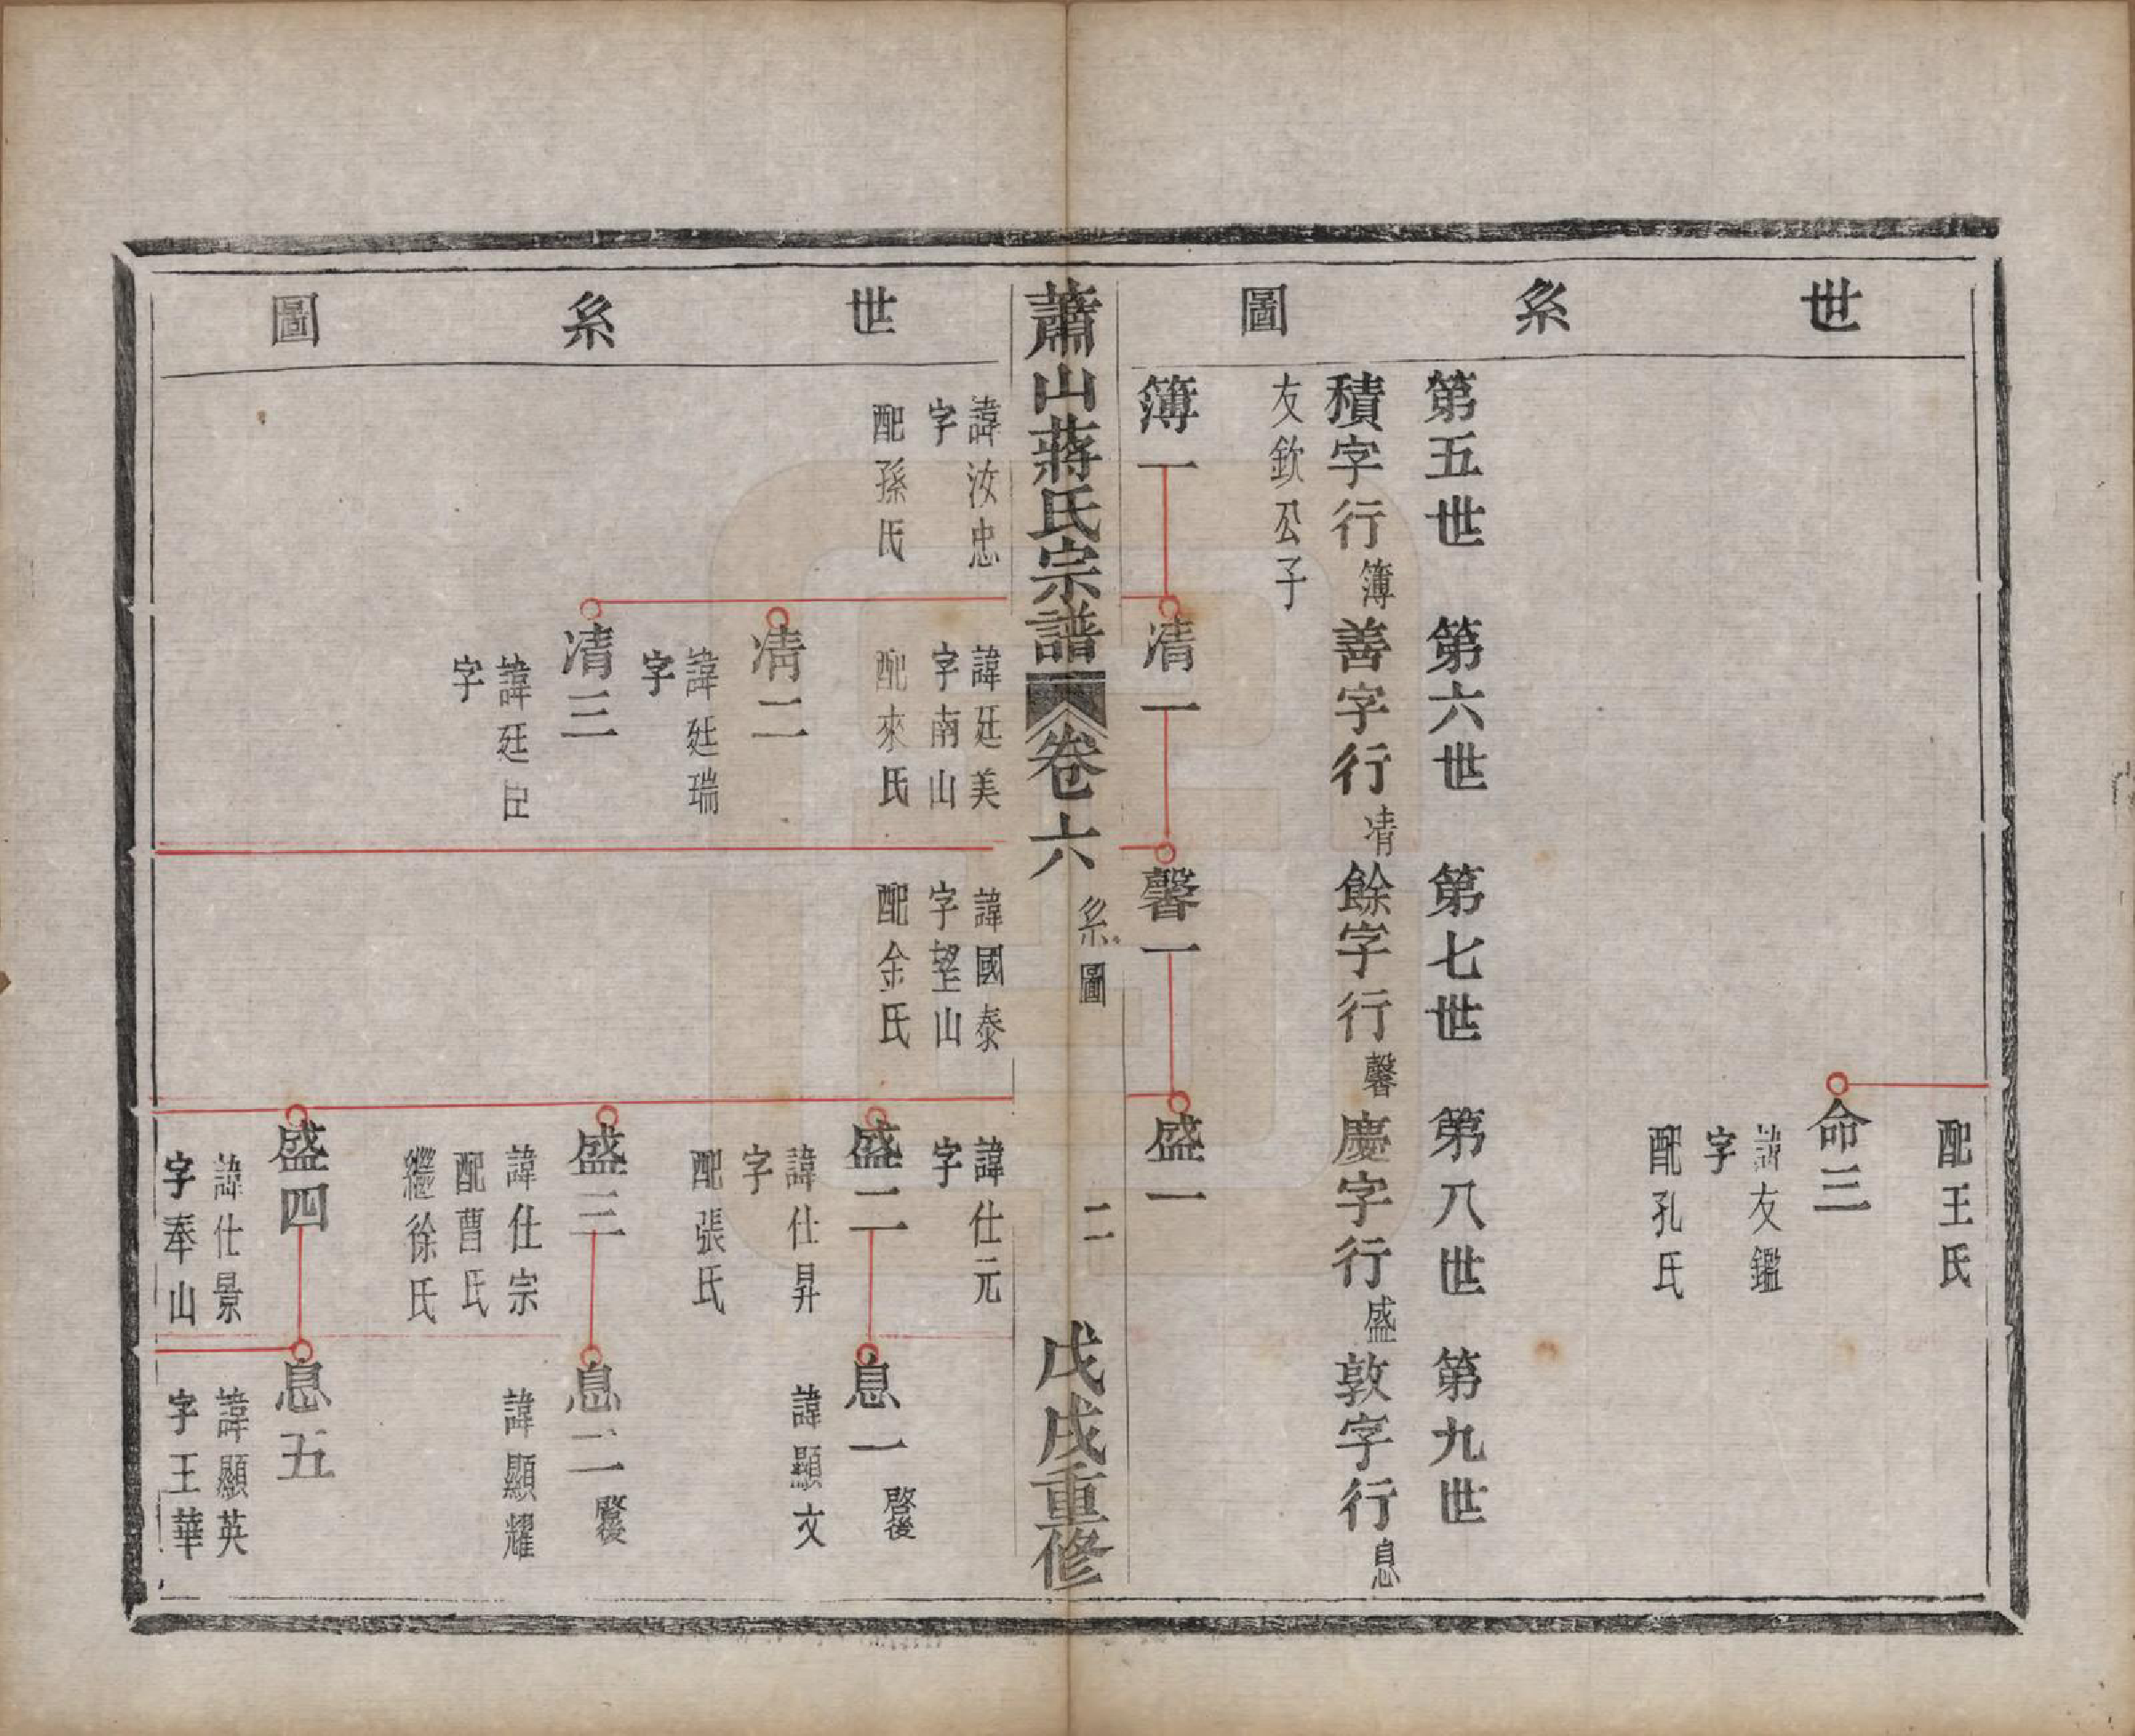 世系圖
配王氏
命三
諱友鑑
字
配孔氏
第五世
第六世
第七世
第八世
第九世
積字行簿
善字行清
餘字行馨
慶字行盛
敦字行息
友欽公子
簿一
清一
馨一
盛一
蕭山蔣氏宗譜
卷六
系圖
二
戊戌重修
世系圖
諱汝忠
字
配孫氏
諱廷美
字南山
配來氏
清二
諱廷瑞
字
清三
諱廷臣
字
諱國泰
字望山
配金氏
諱仕元
字
盛二
諱仕昇
字
配張氏
盛三
諱仕宗
配曹氏
繼徐氏
盛四
諱仕景
字奉山
息一
啓後
諱顯文
息二
啓後
諱顯耀
息五
諱顯英
字王華